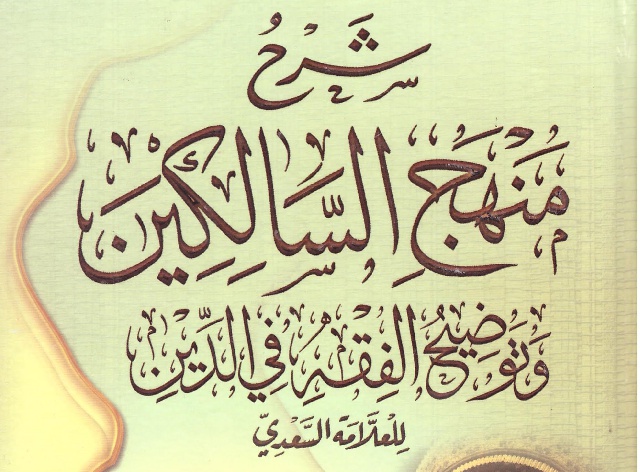 شَرْحُ
مَنْهَجِ السَّالِكِيْنَ
وَتَوْضِيْحُ الْفِقْهِ فِي الدِّيْنِ
لِلْعَلَّامَة السَّعْدِيّ